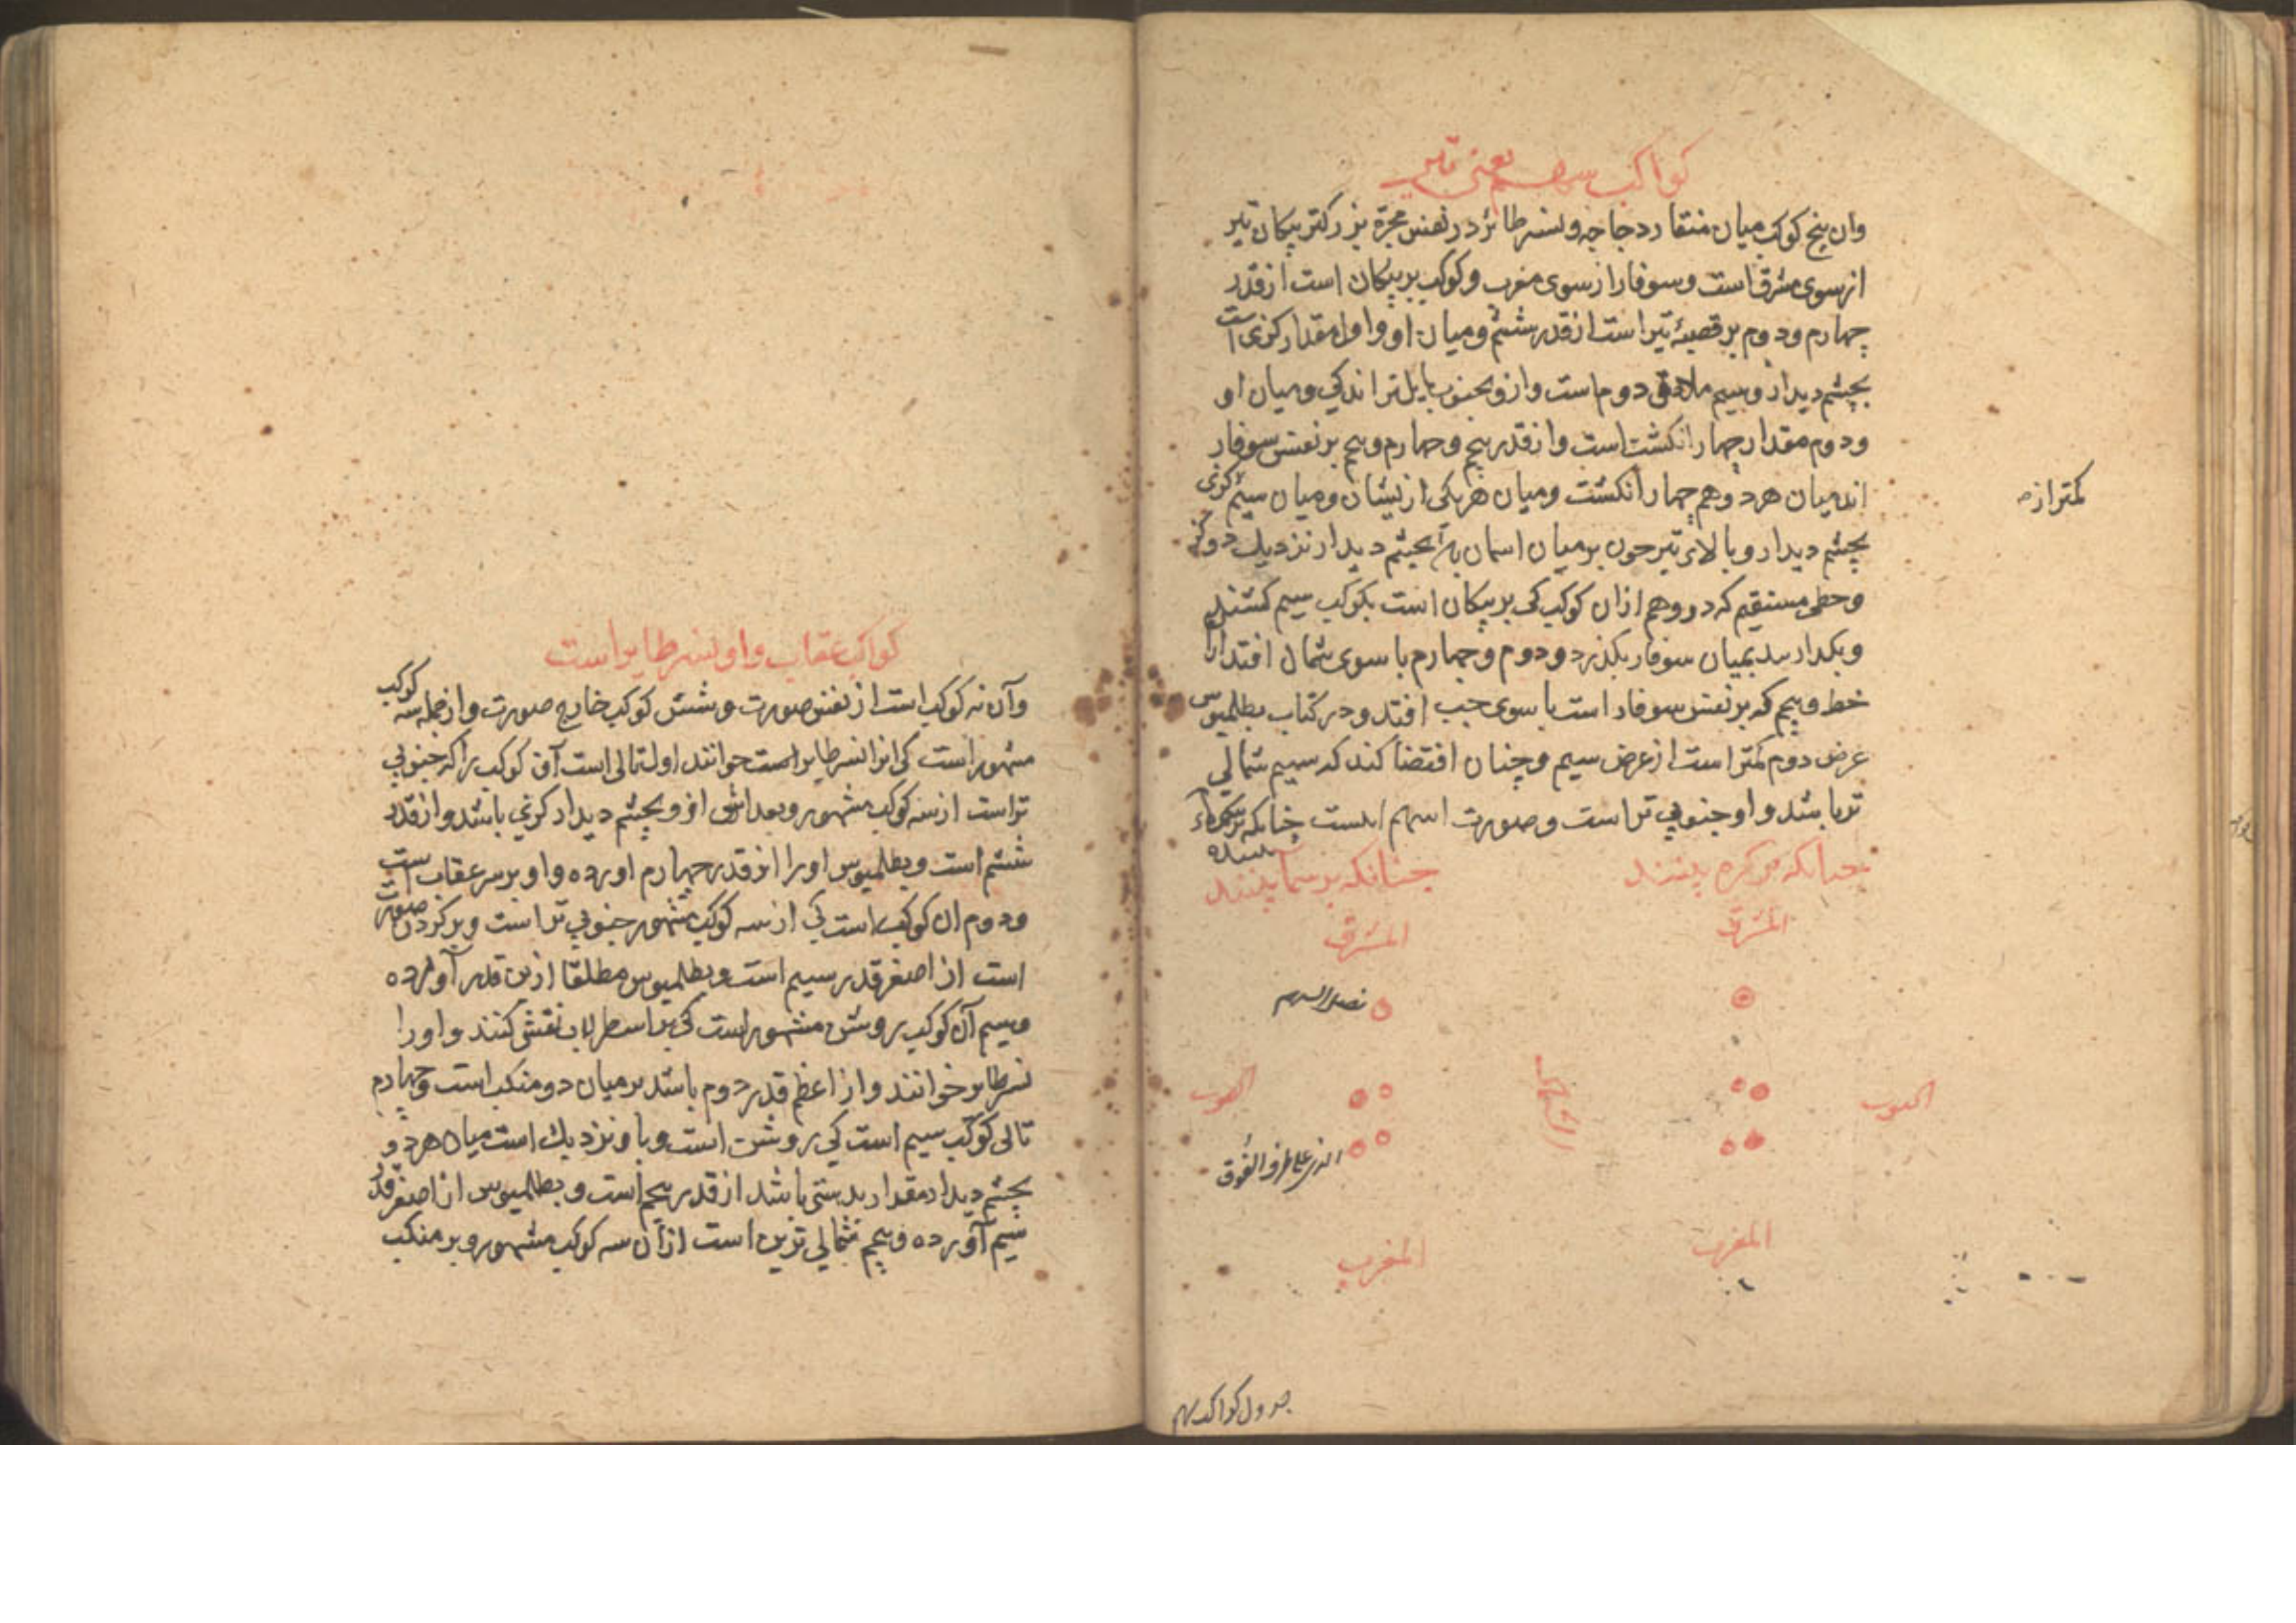 كواكب سهم یعنی تیر
وان پنج كوكب میان منقار دجاجه و نسر طائر در نفس مجرّه بزرکتر پیکان تیر
از سوی مشرق است و سوفار از سوی مغرب و کوکب بر پیکان است از قدر
چهارم و دوم بر قصبهٔ تیر است از قدر ششم و میان او و اول مقدار کزی است
بچشم دیدار و سیم ملاقی دوم است و ازو بجنوب مایل تر اندکی و میان او
و دوم مقدار چهار انکشت است و از قدر پنج و چهارم و پنجم بر نفس سوفار
اند میان هر دو هم چهار انکشت و میان هر یکی ازیشان و میان سیم کزی
کمتر از
بچشم دیدار و بالای تیر چون بر میان اسمان بچشم دیدار نزدیك دو کز
و خطی مستقیم که در وهم ازان کوکب کی بر پیکان است بکوکب سیم کشند
و بکذارند بمیان سوفار بکذرد و دوم و چهارم با سوی شمال افتد ازان
خط و پنجم که بر نفس سوفار است با سوی جنب افتد و در کتاب بطلمیوس
عرض دوم کمتر است از عرض سیم و چنان اقتضا کند که سیم شمالی
تر باشد و او جنوبی تر است و صورت اسهم اینست چنانکه بر سما
بینند
چنانکه بر کره بینند
چنانکه بر سما بینند
المشرق
المشرق
نصل السهم
الجنوب
الشمال
الجنوب
الذی علی طرف الفوق
المغرب
المغرب
جدول کواکب سهم
کواکب عقاب و او نسر طایر است
و آن نه کوکب است از نفس صورت و شش کوکب خارج صورت و از جمله سه کوکب
مشهور است کی انرا نسر طایر است خوانند اول تالی است آن کوکب را که جنوبی
تر است از سه کوکب مشهور و بعد اش ازو بچشم دیدار کزی باشد و از قدر
ششم است و بطلمیوس او را از قدر چهارم اورده و او بر سر عقاب است
و دوم ان کوکب است کی از سه کوکب مشهور جنوبی تر است و بر کردن صورت
است از اصغر قدر سیم است و بطلمیوس مطلقا ازین قدر آورده
و سیم آن کوکب روشن مشهور است کی بر اسطرلاب نقش کنند و اورا
نسر طایر خوانند و از اعظم قدر دوم باشد بر میان دو منکب است و چهارم
تالی کوکب سیم است کی روشن است و باو نزدیك است میان هر دو
بچشم دیدار مقدار بدستی باشد از قدر پنجم است و بطلمیوس از اصغر قدر
سیم آورده و پنجم شمالی ترین است ازان سه کوکب مشهور و بر منکب